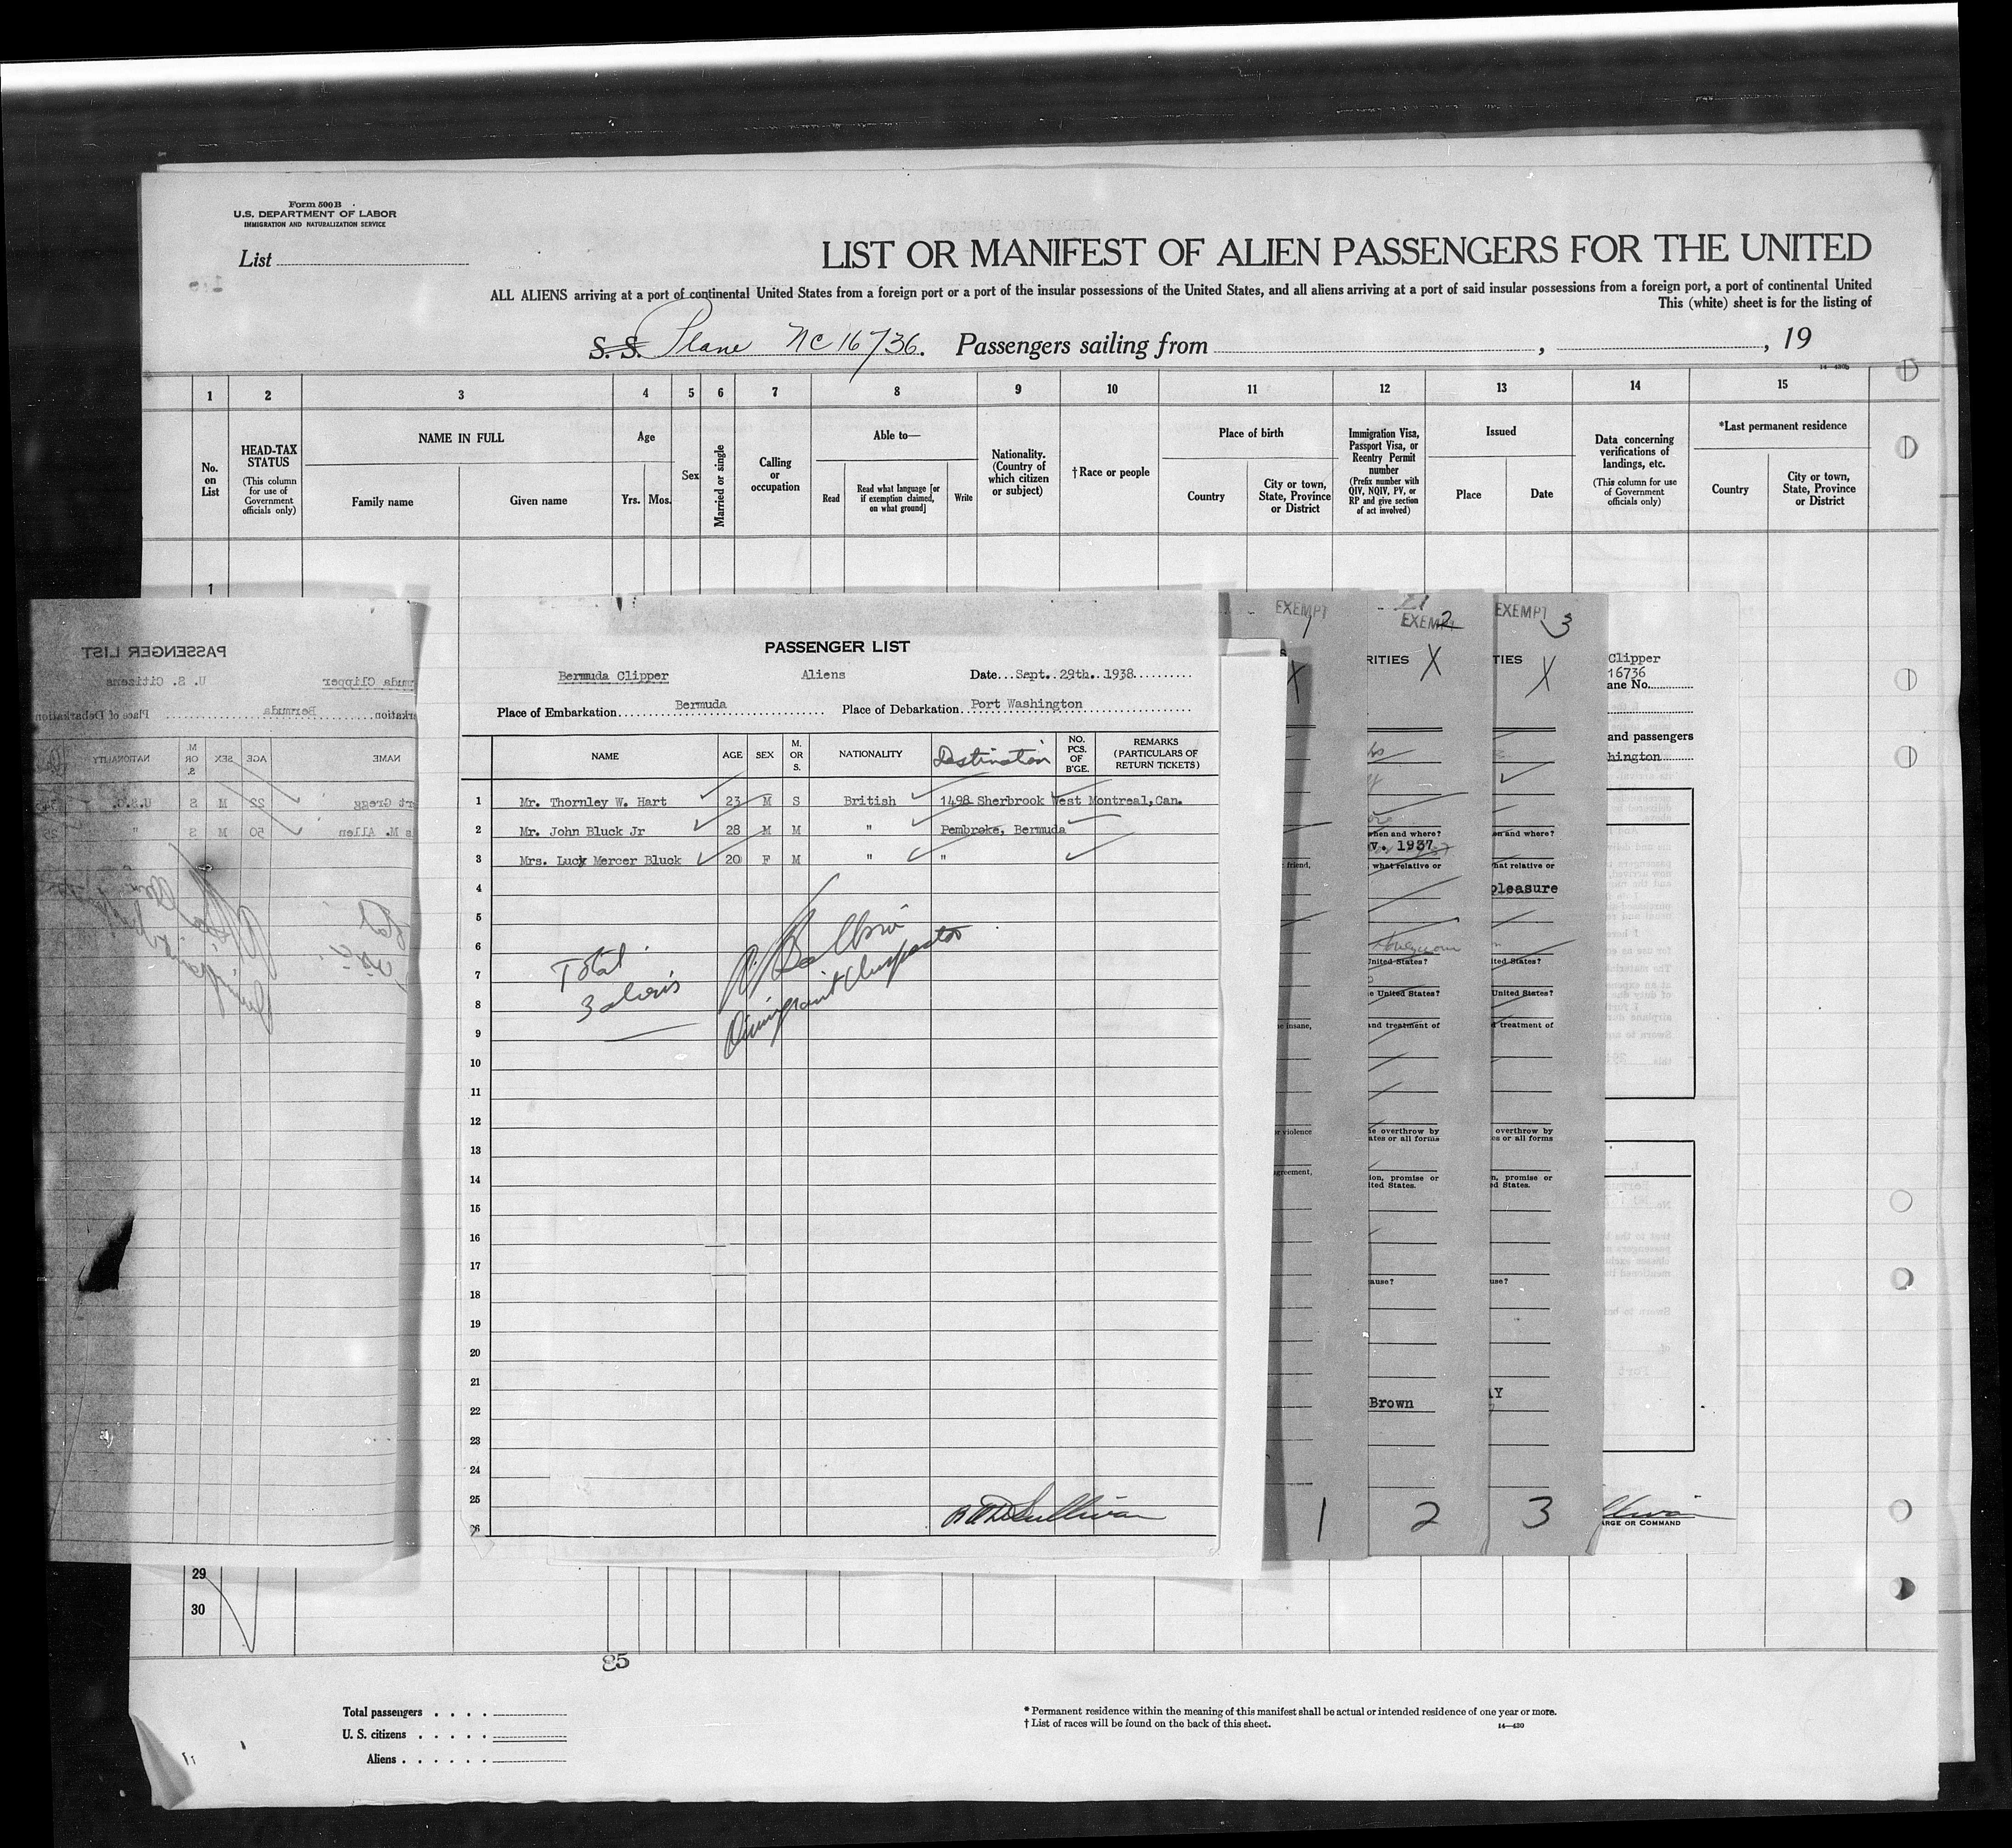 Form 500B
U.S. DEPARTMENT OF LABOR
IMMIGRATION AND NATURALIZATION SERVICE
List
LIST OR MANIFEST OF ALIEN PASSENGERS FOR THE UNITED
ALL ALIENS arriving at a port of continental United States from a foreign port or a port of the insular possessions of the United States, and all aliens arriving at a port of said insular possessions from a foreign port, a port of continental United
This (white) sheet is for the listing of
S. S. Plane NC 16736. Passengers sailing from , , 19
1 2 3 4 5 6 7 8 9 10 11 12 13 14 15
No. on List
HEAD-TAX STATUS (This column for use of Government officials only)
NAME IN FULL
Family name Given name
Age
Yrs. Mos.
Sex
Married or single
Calling or occupation
Able to—
Read
Read what language [or if exemption claimed, on what ground]
Write
Nationality. (Country of which citizen or subject)
†Race or people
Place of birth
Country
City or town, State, Province or District
Immigration Visa, Passport Visa, or Reentry Permit number (Prefix number with QIV, NQIV, PV, or RP and give section of act involved)
Issued
Place Date
Data concerning verifications of landings, etc. (This column for use of Government officials only)
*Last permanent residence
Country
City or town, State, Province or District
1
PASSENGER LIST
U. S. Citizens
Bermuda
Place of Debarkation
NAME AGE SEX M OR S. NATIONALITY
Gregg 22 M S U.S.A.
M. Allen 50 M S "
PASSENGER LIST
Bermuda Clipper Aliens Date...Sept. 29th. 1938
Place of Embarkation Bermuda Place of Debarkation Port Washington
NAME AGE SEX M. OR S. NATIONALITY Destination NO. PCS. OF B'GE. REMARKS (PARTICULARS OF RETURN TICKETS)
1 Mr. Thornley W. Hart 23 M S British 1498 Sherbrook West Montreal, Can.
2 Mr. John Bluck Jr 28 M M " Pembroke, Bermuda
3 Mrs. Lucy Mercer Bluck 20 F M " "
4
5
6
7
8
9
10
11
12
13
14
15
16
17
18
19
20
21
22
23
24
25
26
Total
3 aliens
Immigrant Inspector
EXEMPT 1
EXEMPT 2
EXEMPT 3
RITIES X
TIES X
Clipper
16736
ane No.
and passengers
hington
when and where?
en and where?
v. 1937
friend,
what relative or
hat relative or
pleasure
Honeymoon
nited States?
ited States?
e United States?
United States?
e insane,
and treatment of
treatment of
r violence
e overthrow by
ates or all forms
overthrow by
es or all forms
greement,
ion, promise or
ited States.
n, promise or
ed States.
ause?
use?
Brown
AY
1 2 3
ARGE OR COMMAND
29
30
85
Total passengers
U. S. citizens
Aliens
* Permanent residence within the meaning of this manifest shall be actual or intended residence of one year or more.
† List of races will be found on the back of this sheet.
14—430